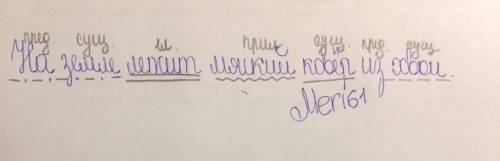 пред сущ. гл. прил сущ. пред. сущ
На земле лежит мягкий ковёр из хвои.
Meri61